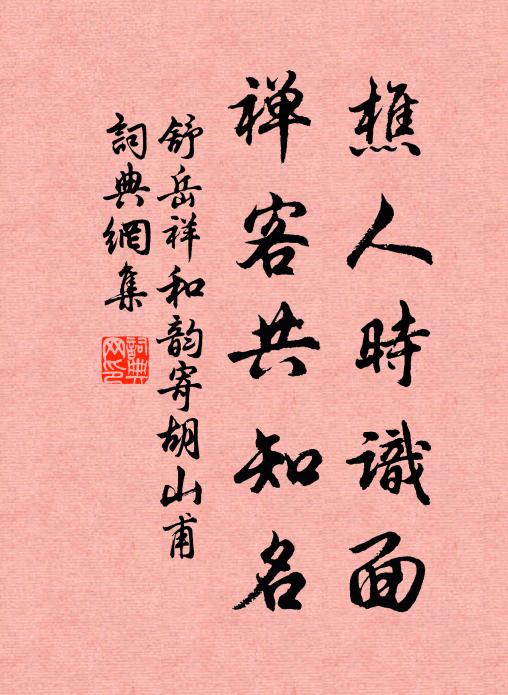 樵人時識面
禅客共知名
舒岳祥和韵寄胡山甫
詞典網集
詞典網印